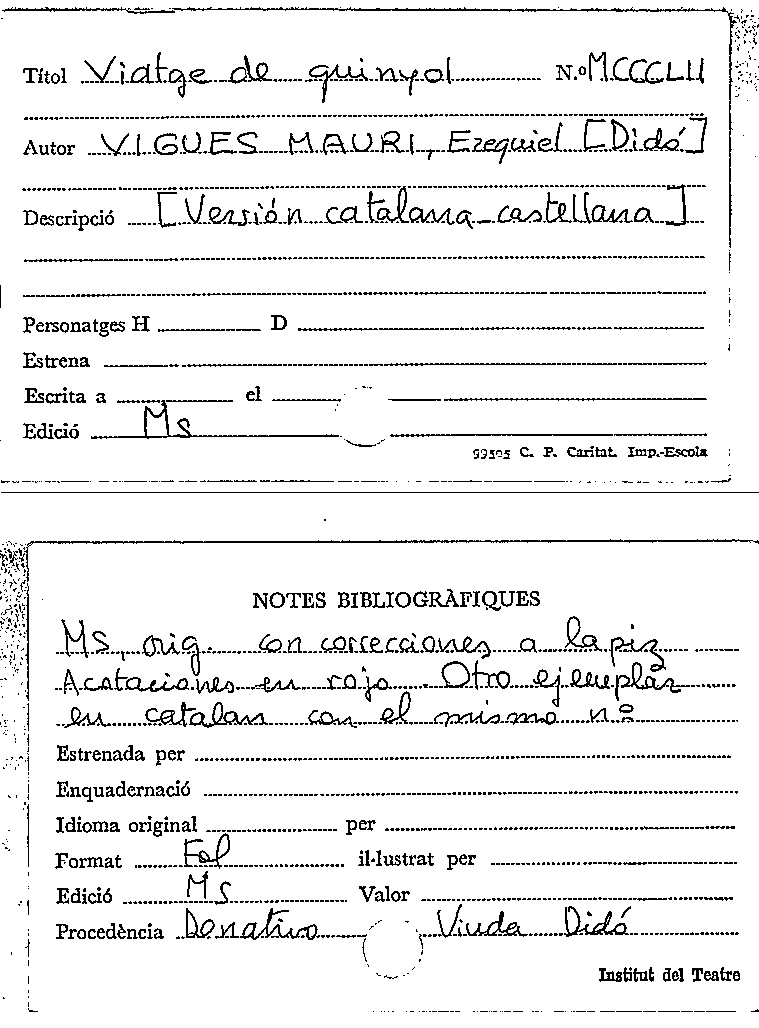 Títol Viatge de guinyol N.º MCCCLII
Autor VIGUES MAURI, Ezequiel [Didó]
Descripció [Versión catalana-castellana]
Personatges H D
Estrena
Escrita a el
Edició Ms
99505 C. P. Caritat. Imp.-Escola
NOTES BIBLIOGRÀFIQUES
Ms, orig. con correcciones a lapiz
Acotaciones en rojo. Otro ejemplar
en catalan con el mismo nº
Estrenada per
Enquadernació
Idioma original per
Format Fol il·lustrat per
Edició Ms Valor
Procedència Donativo Viuda Didó
Institut del Teatre